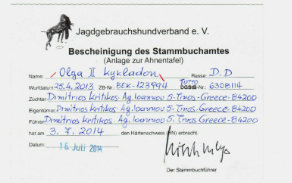 Jagdgebrauchshundverband e. V.
Bescheinigung des Stammbuchamtes
(Anlage zur Ahnentafel)
Name: Olga II Kykladon Rasse: D.D
Wurfdatum: 25.4.2013 ZB-Nr. BEK-123974 6308114
Züchter: Dimitrios Kritikos Ag. Ioannou 5-Tinos-Greece-84200
Eigentümer: Dimitrios Kritikos Ag. Ioannou 5-Tinos-Greece-84200
Führer: Dimitrios Kritikos Ag. Ioannou 5-Tinos-Greece-84200
hat am 3.7.2014 den Härtenachweis erbracht.
Datum: 16. Juli 2014
Der Stammbuchführer